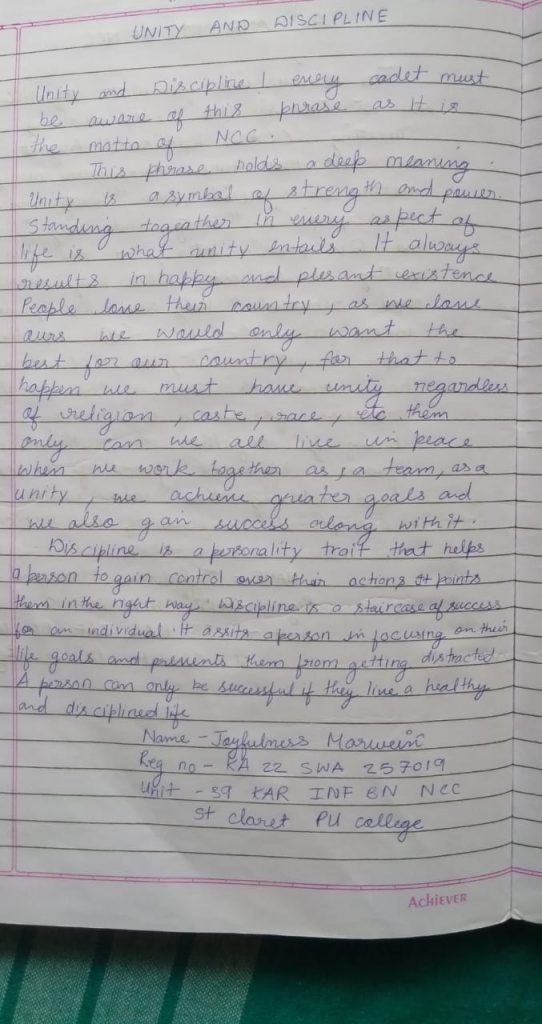 UNITY AND DISCIPLINE
Unity and Discipline! every cadet must
be aware of this phrase as It is
the motto of NCC.
This phrase holds a deep meaning.
Unity is a symbol of strength and power.
Standing togeather in every aspect of
life is what unity entails. It always
results in happy and plesant existence
People love their country, as we love
ours we would only want the
best for our country, for that to
happen we must have unity regardless
of religion, caste, race, etc them
only can we all live in peace
when we work together as, a team, as a
unity, we achieve greater goals and
we also gain success along with it.
Discipline is a personality trait that helps
a person to gain control over their actions It points
them in the right way. Discipline is a staircase of success
for an individual. It assits a person in focusing on their
life goals and prevents them from getting distracted.
A person can only be successful if they live a healthy
and disciplined life
Name - Joyfulness Marwein
Reg no - KA 22 SWA 257019
Unit - 39 KAR INF BN NCC
St claret PU college
Achiever